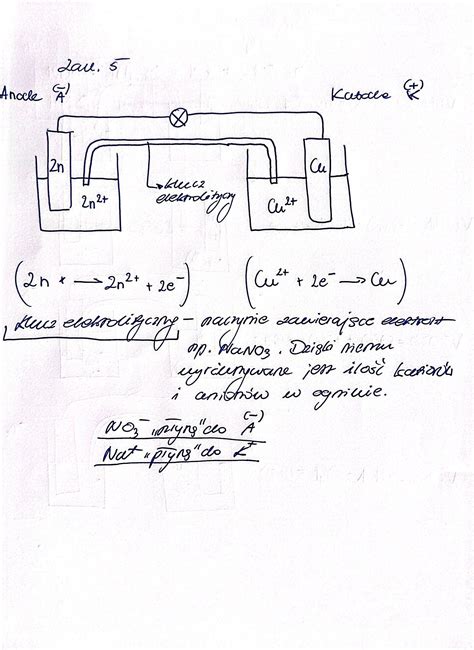 Zad. 5
Anoda (-) A
Katoda (+) K
Zn
Zn²⁺
klucz
elektrolityczny
Cu²⁺
Cu
(Zn → Zn²⁺ + 2e⁻)
(Cu²⁺ + 2e⁻ → Cu)
klucz elektrolityczny - naczynie zawierające
np. NaNO₃. Dzięki niemu
wyrównywane jest ilość kationów
i anionów w ogniwie.
NO₃⁻ „płyną" do A (-)
Na⁺ „płyną" do K⁺